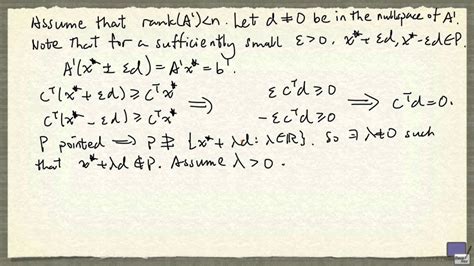 Assume that rank(A')<n. Let d ≠ 0 be in the nullspace of A'.
Note that for a sufficiently small ε>0, x*+εd, x*-εd∈P.
A'(x* ± εd) = A'x* = b'.
c^T(x* + εd) ≥ c^T x* ⟹ ε c^T d ≥ 0 ⟹ c^T d = 0.
c^T(x* - εd) ≥ c^T x* -ε c^T d ≥ 0
P pointed ⟹ P ⊉ {x* + λd : λ∈ℝ}. So ∃ λ≠0 such
that x* + λd ∉ P. Assume λ > 0.